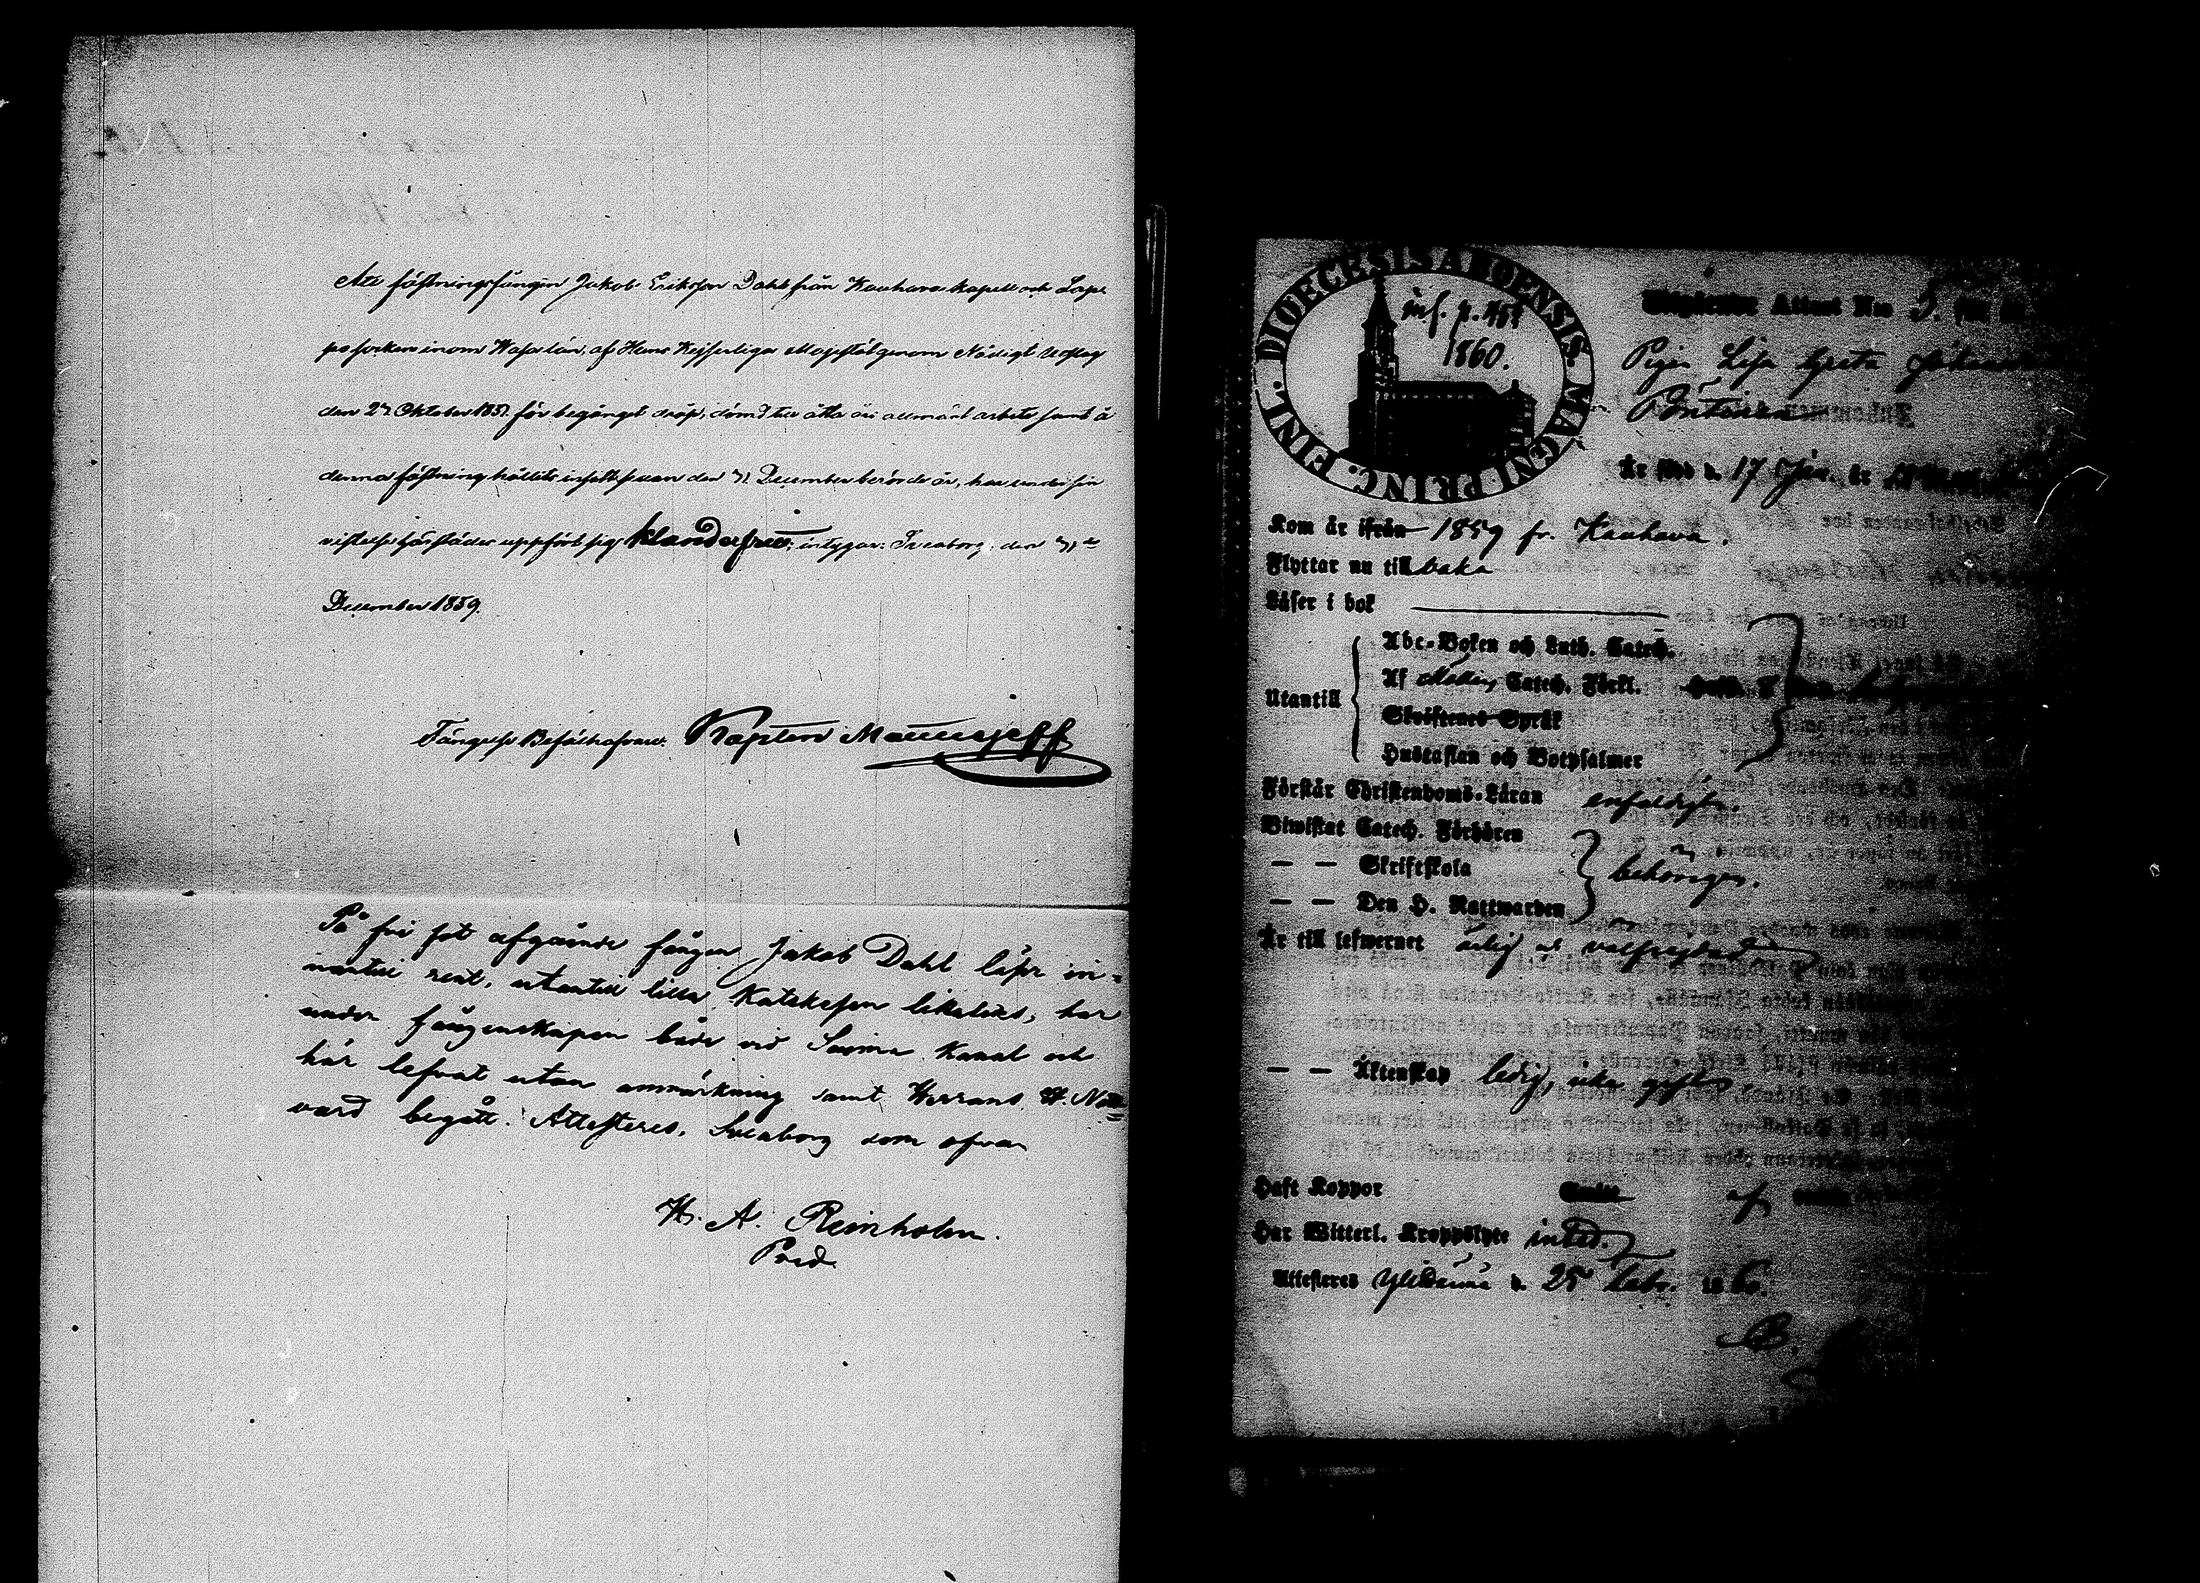 Att fästningsfången Jakob Eriksson Dahl från Kauhava kapell och Lap-
po socken inom Wasa län, af Hans Kejserliga Majestät genom Nådigt utslag
den 27 Oktober 1851 för begånget dråp, dömd till åtta års allmänt arbete samt å
denna fästning hållits inställd sedan den 31 December berörde år, har under sin
vistelse härstädes uppfört sig klanderfritt; intygar. Sveaborg, den 31ste
December 1859.
Fånge Befälhafvare. Kapten
På fri fot afgående fången Jakob Dahl läser in-
nantill rent, utantill lilla Katekesen likaledes, har
under fångenskapen både vid Saima Kanal och
här lefvat utan anmärkning samt Herrans H. Natt-
vard begått. Attesteres, Sveaborg som ofvan
H. A. Reinholm.
Pred.
DIOECESIS ABOENSIS. MAGNI PRINC. FINL.
inf. p.
1860.
Attest Nro 5.
Pigan Lisa Greta
Är född d. 17 Jan. år
Kom år ifrån 1859 fr. Kauhava.
Flyttar nu tillbaka
Läser i bok
Utantill
Abc-Boken och Luth. Catech.
Af Catech. Förkl.
Skriftenes Språk
Hustaflan och Botpsalmer
Förstår Christendoms-Läran enfaldigt.
Biwistat Catech. Förhören
— — Skriftskola behörigen.
— — Den H. Nattwarden
Är till lefwernet ärlig o. välfrejdad
— — Äktenskap ledig, icke gift
Haft Koppor
Har Witterl. Kroppslyte intet.
Attesteres Ylistaro d. 25 Febr. 1860.